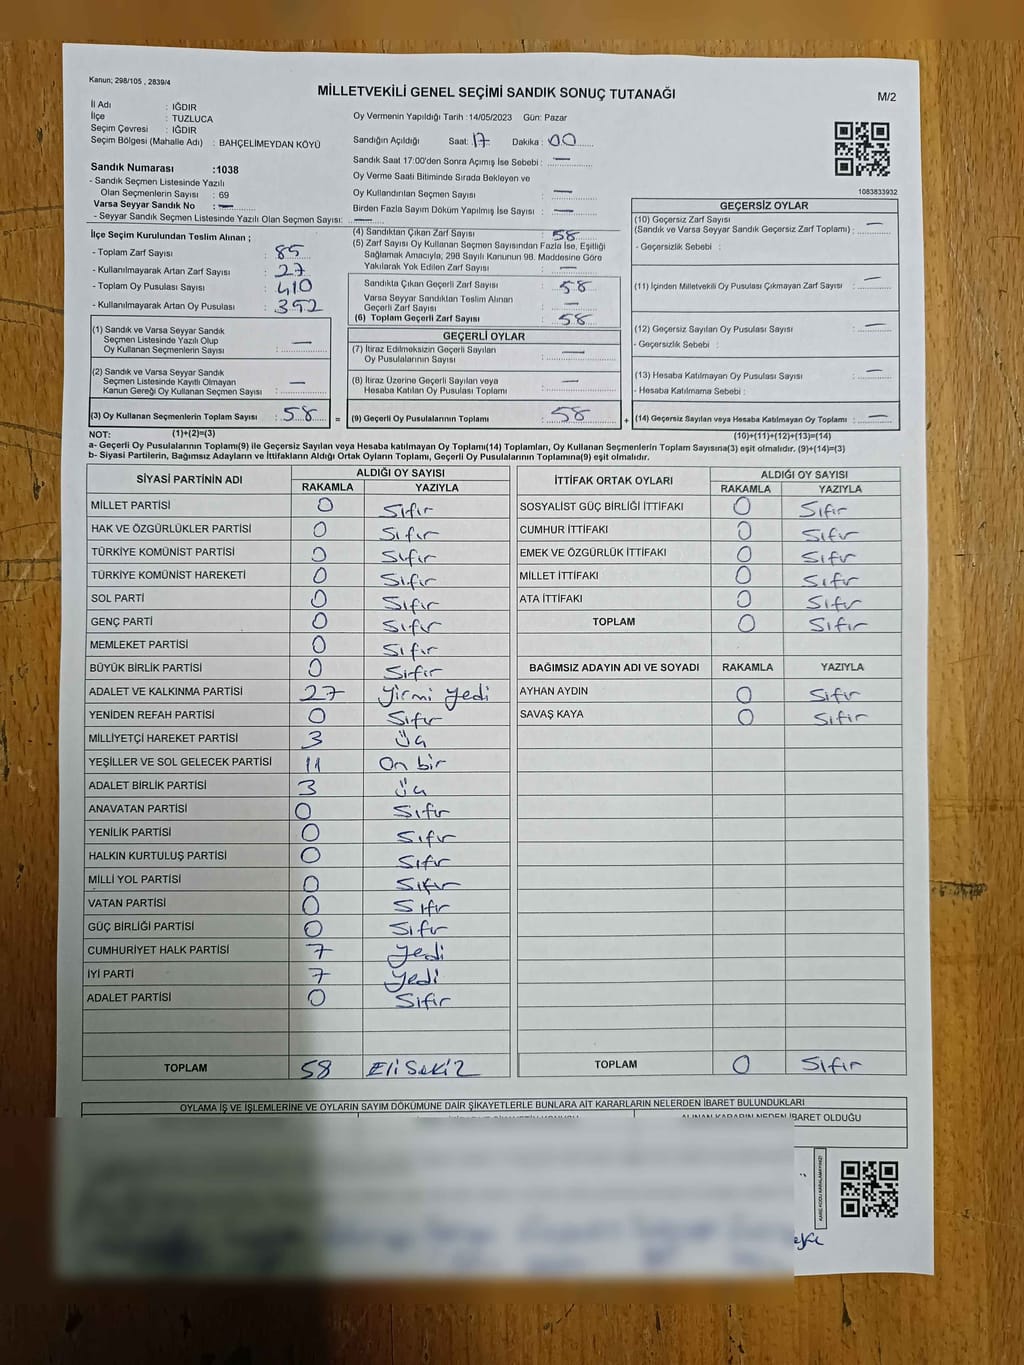 Kanun; 298/105 , 2839/4
MİLLETVEKİLİ GENEL SEÇİMİ SANDIK SONUÇ TUTANAĞI
M/2
İl Adı : IĞDIR
İlçe : TUZLUCA
Seçim Çevresi : IĞDIR
Seçim Bölgesi (Mahalle Adı) : BAHÇELİMEYDAN KÖYÜ
Sandık Numarası :1038
- Sandık Seçmen Listesinde Yazılı
Olan Seçmenlerin Sayısı : 69
Varsa Seyyar Sandık No : —
- Seyyar Sandık Seçmen Listesinde Yazılı Olan Seçmen Sayısı: —
Oy Vermenin Yapıldığı Tarih :14/05/2023 Gün: Pazar
Sandığın Açıldığı Saat: 17 Dakika: 00
Sandık Saat 17:00'den Sonra Açımış İse Sebebi : —
Oy Verme Saati Bitiminde Sırada Bekleyen ve
Oy Kullandırılan Seçmen Sayısı : —
Birden Fazla Sayım Döküm Yapılmış İse Sayısı : —
1083833932
İlçe Seçim Kurulundan Teslim Alınan ;
- Toplam Zarf Sayısı : 85
- Kullanılmayarak Artan Zarf Sayısı : 27
- Toplam Oy Pusulası Sayısı : 410
- Kullanılmayarak Artan Oy Pusulası : 352
(1) Sandık ve Varsa Seyyar Sandık
Seçmen Listesinde Yazılı Olup
Oy Kullanan Seçmenlerin Sayısı : —
(2) Sandık ve Varsa Seyyar Sandık
Seçmen Listesinde Kayıtlı Olmayan
Kanun Gereği Oy Kullanan Seçmen Sayısı : —
(3) Oy Kullanan Seçmenlerin Toplam Sayısı : 58
(1)+(2)=(3)
(4) Sandıktan Çıkan Zarf Sayısı : 58
(5) Zarf Sayısı Oy Kullanan Seçmen Sayısından Fazla İse, Eşitliği
Sağlamak Amacıyla; 298 Sayılı Kanunun 98. Maddesine Göre
Yakılarak Yok Edilen Zarf Sayısı : —
Sandıkta Çıkan Geçerli Zarf Sayısı : 58
Varsa Seyyar Sandıktan Teslim Alınan
Geçerli Zarf Sayısı : —
(6) Toplam Geçerli Zarf Sayısı : 58
GEÇERLİ OYLAR
(7) İtiraz Edilmeksizin Geçerli Sayılan
Oy Pusulalarının Sayısı : —
(8) İtiraz Üzerine Geçerli Sayılan veya
Hesaba Katılan Oy Pusulası Toplamı : —
= (9) Geçerli Oy Pusulalarının Toplamı : 58 +
GEÇERSİZ OYLAR
(10) Geçersiz Zarf Sayısı
(Sandık ve Varsa Seyyar Sandık Geçersiz Zarf Toplamı) : —
- Geçersizlik Sebebi :
(11) İçinden Milletvekili Oy Pusulası Çıkmayan Zarf Sayısı : —
(12) Geçersiz Sayılan Oy Pusulası Sayısı : —
- Geçersizlik Sebebi :
(13) Hesaba Katılmayan Oy Pusulası Sayısı : —
- Hesaba Katılmama Sebebi :
(14) Geçersiz Sayılan veya Hesaba Katılmayan Oy Toplamı : —
(10)+(11)+(12)+(13)=(14)
NOT:
a- Geçerli Oy Pusulalarının Toplamı(9) ile Geçersiz Sayılan veya Hesaba katılmayan Oy Toplamı(14) Toplamları, Oy Kullanan Seçmenlerin Toplam Sayısına(3) eşit olmalıdır. (9)+(14)=(3)
b- Siyasi Partilerin, Bağımsız Adayların ve İttifakların Aldığı Ortak Oyların Toplamı, Geçerli Oy Pusulalarının Toplamına(9) eşit olmalıdır.
SİYASİ PARTİNİN ADI ALDIĞI OY SAYISI
RAKAMLA YAZIYLA
MİLLET PARTİSİ 0 Sıfır
HAK VE ÖZGÜRLÜKLER PARTİSİ 0 Sıfır
TÜRKİYE KOMÜNİST PARTİSİ 0 Sıfır
TÜRKİYE KOMÜNİST HAREKETİ 0 Sıfır
SOL PARTİ 0 Sıfır
GENÇ PARTİ 0 Sıfır
MEMLEKET PARTİSİ 0 Sıfır
BÜYÜK BİRLİK PARTİSİ 0 Sıfır
ADALET VE KALKINMA PARTİSİ 27 Yirmi yedi
YENİDEN REFAH PARTİSİ 0 Sıfır
MİLLİYETÇİ HAREKET PARTİSİ 3 Üç
YEŞİLLER VE SOL GELECEK PARTİSİ 11 On bir
ADALET BİRLİK PARTİSİ 3 Üç
ANAVATAN PARTİSİ 0 Sıfır
YENİLİK PARTİSİ 0 Sıfır
HALKIN KURTULUŞ PARTİSİ 0 Sıfır
MİLLİ YOL PARTİSİ 0 Sıfır
VATAN PARTİSİ 0 Sıfır
GÜÇ BİRLİĞİ PARTİSİ 0 Sıfır
CUMHURİYET HALK PARTİSİ 7 Yedi
İYİ PARTİ 7 Yedi
ADALET PARTİSİ 0 Sıfır
TOPLAM 58 Eli Sekiz
İTTİFAK ORTAK OYLARI ALDIĞI OY SAYISI
RAKAMLA YAZIYLA
SOSYALİST GÜÇ BİRLİĞİ İTTİFAKI 0 Sıfır
CUMHUR İTTİFAKI 0 Sıfır
EMEK VE ÖZGÜRLÜK İTTİFAKI 0 Sıfır
MİLLET İTTİFAKI 0 Sıfır
ATA İTTİFAKI 0 Sıfır
TOPLAM 0 Sıfır
BAĞIMSIZ ADAYIN ADI VE SOYADI RAKAMLA YAZIYLA
AYHAN AYDIN 0 Sıfır
SAVAŞ KAYA 0 Sıfır
TOPLAM 0 Sıfır
OYLAMA İŞ VE İŞLEMLERİNE VE OYLARIN SAYIM DÖKÜMÜNE DAİR ŞİKAYETLERLE BUNLARA AİT KARARLARIN NELERDEN İBARET BULUNDUKLARI
ALINAN KARARIN NEDEN İBARET OLDUĞU
KARE KODU KARALAMAYINIZ!